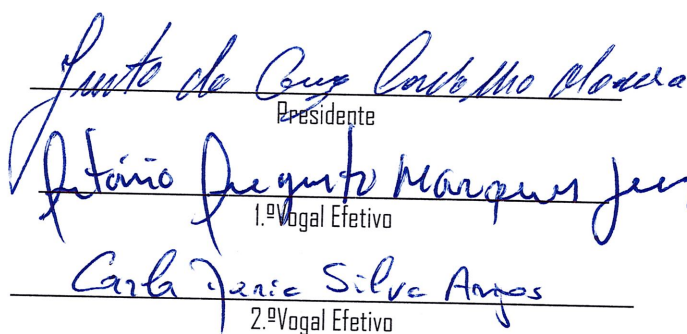 Justo da Cruz
Presidente
António Augusto Marques
1.ºVogal Efetivo
Carla Maria Silva Anjos
2.ºVogal Efetivo